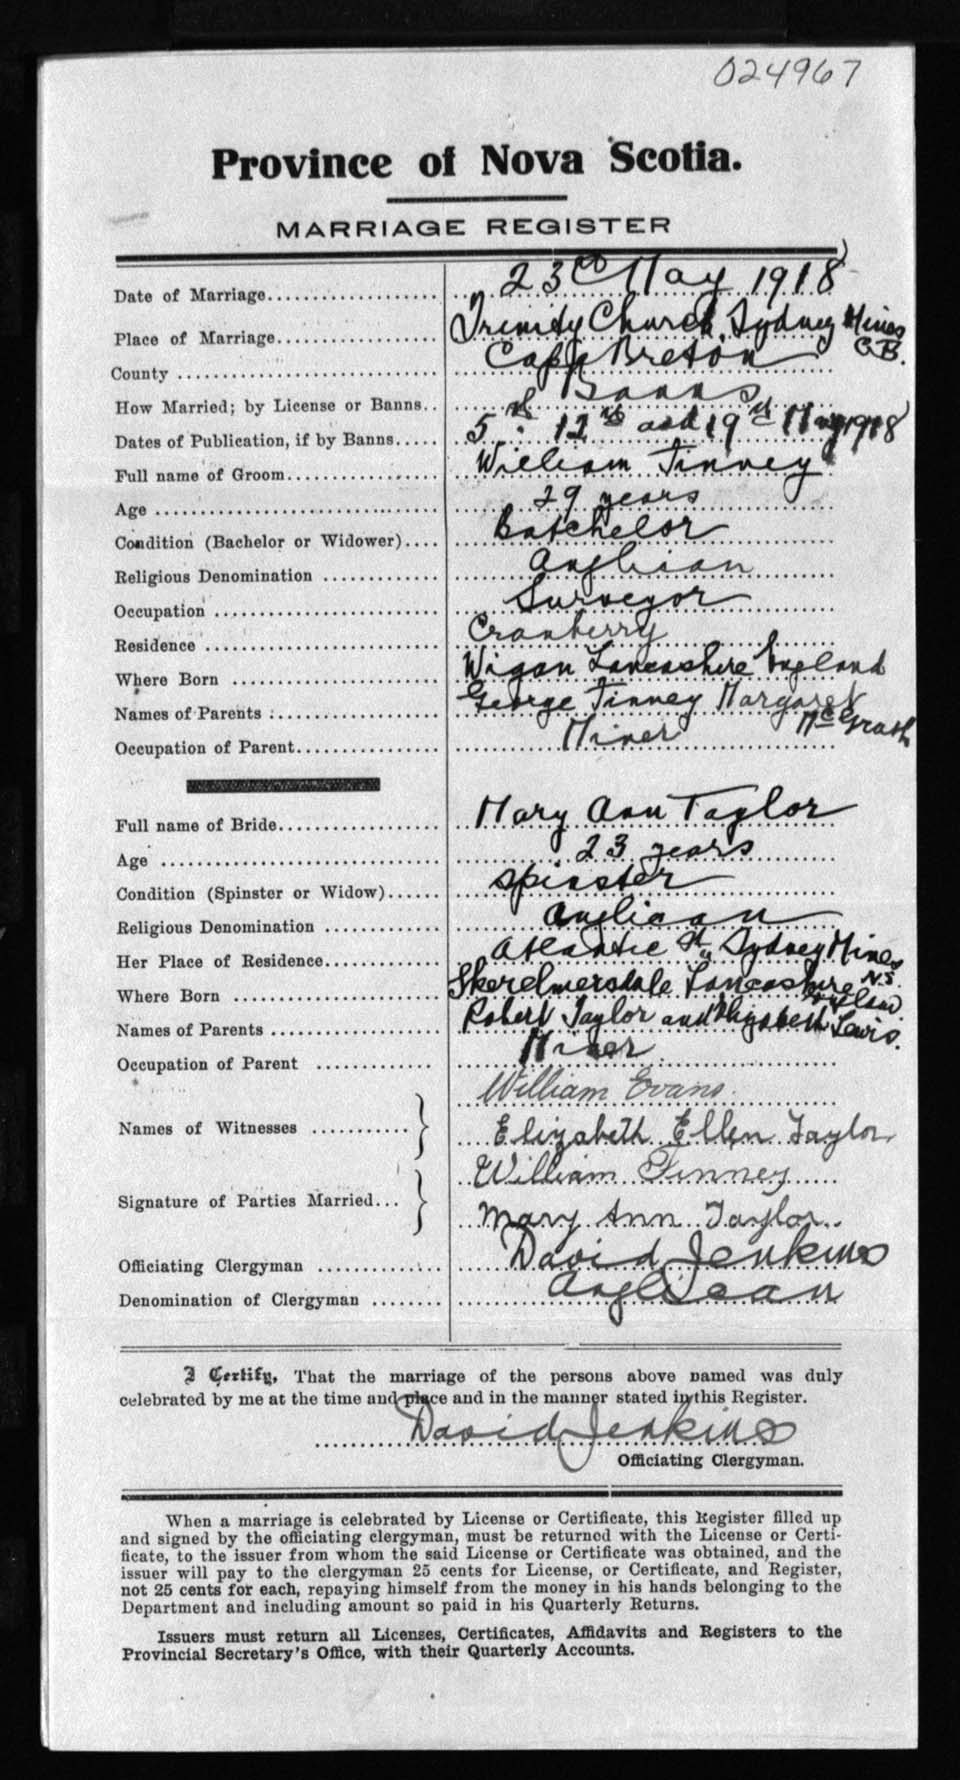 024967
Province of Nova Scotia.
MARRIAGE REGISTER
Date of Marriage.................... 23rd May 1918
Place of Marriage................... Trinity Church, Sydney Mines C.B.
County .............................. Cape Breton
How Married; by License or Banns.. Banns
Dates of Publication, if by Banns..... 5th 12th and 19th May 1918
Full name of Groom.................. William Tinney
Age ................................. 29 years
Condition (Bachelor or Widower).... Batchelor
Religious Denomination ............. Anglican
Occupation .......................... Surveyor
Residence ........................... Cranberry
Where Born ......................... Wigan Lancashire England
Names of Parents .................... George Tinney Margaret McGrath
Occupation of Parent................. Miner
Full name of Bride................... Mary Ann Taylor
Age ................................. 23 years
Condition (Spinster or Widow)...... Spinster
Religious Denomination ............. Anglican
Her Place of Residence.............. Atlantic St, Sydney Mines N.S.
Where Born ......................... Skerelmersdale Lancashire England
Names of Parents .................... Robert Taylor and Elizabeth Lewis.
Occupation of Parent .............. Miner
Names of Witnesses ........... William Evans.
Elizabeth Ellen Taylor
Signature of Parties Married... William Tinney
Mary Ann Taylor
Officiating Clergyman .............. David Jenkins
Denomination of Clergyman ........ Anglican
I Certify, That the marriage of the persons above named was duly
celebrated by me at the time and place and in the manner stated in this Register.
David Jenkins
Officiating Clergyman.
When a marriage is celebrated by License or Certificate, this Register filled up
and signed by the officiating clergyman, must be returned with the License or Certi-
ficate, to the issuer from whom the said License or Certificate was obtained, and the
issuer will pay to the clergyman 25 cents for License, or Certificate, and Register,
not 25 cents for each, repaying himself from the money in his hands belonging to the
Department and including amount so paid in his Quarterly Returns.
Issuers must return all Licenses, Certificates, Affidavits and Registers to the
Provincial Secretary's Office, with their Quarterly Accounts.